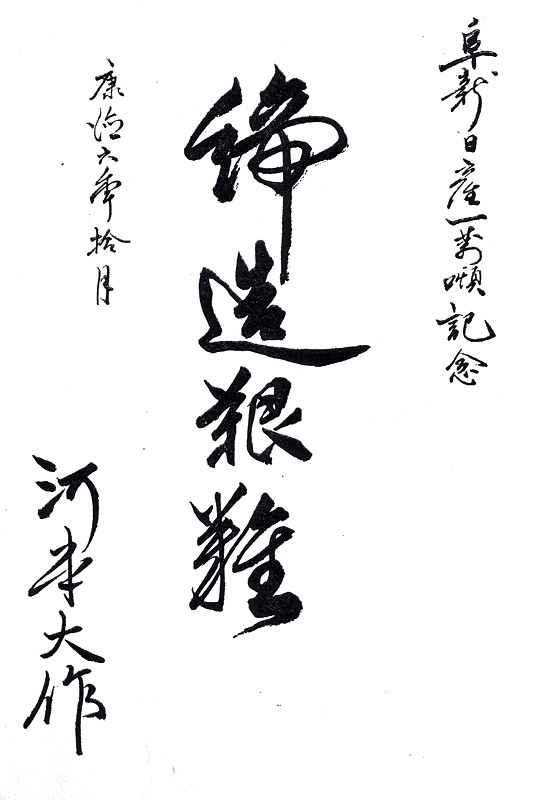 阜新日産一萬噸記念
締造艱難
康德六年拾月
河本大作